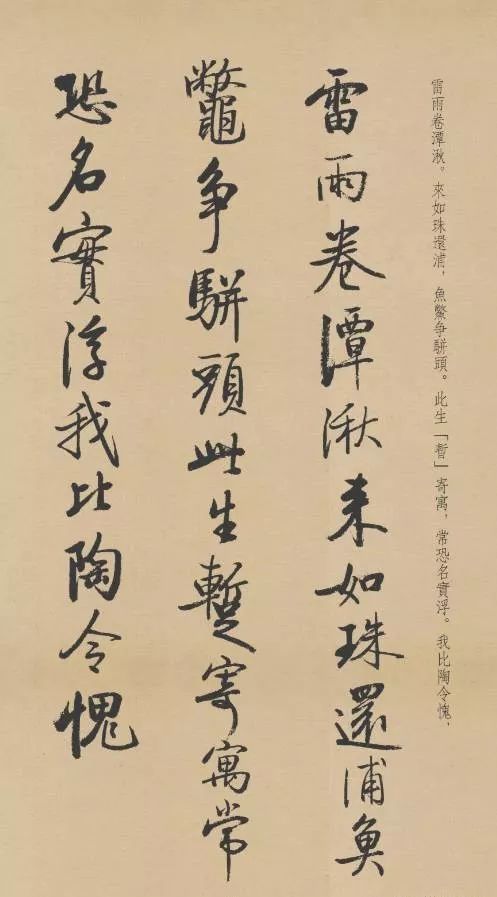 雷雨卷潭湫。來如珠還浦，魚鱉争駢頭。此生「暫」寄寓，常恐名實浮。我比陶令愧，
雷雨卷潭湫来如珠還浦魚
鼈争駢頭此生蹔寄寓常
恐名實浮我比陶令愧